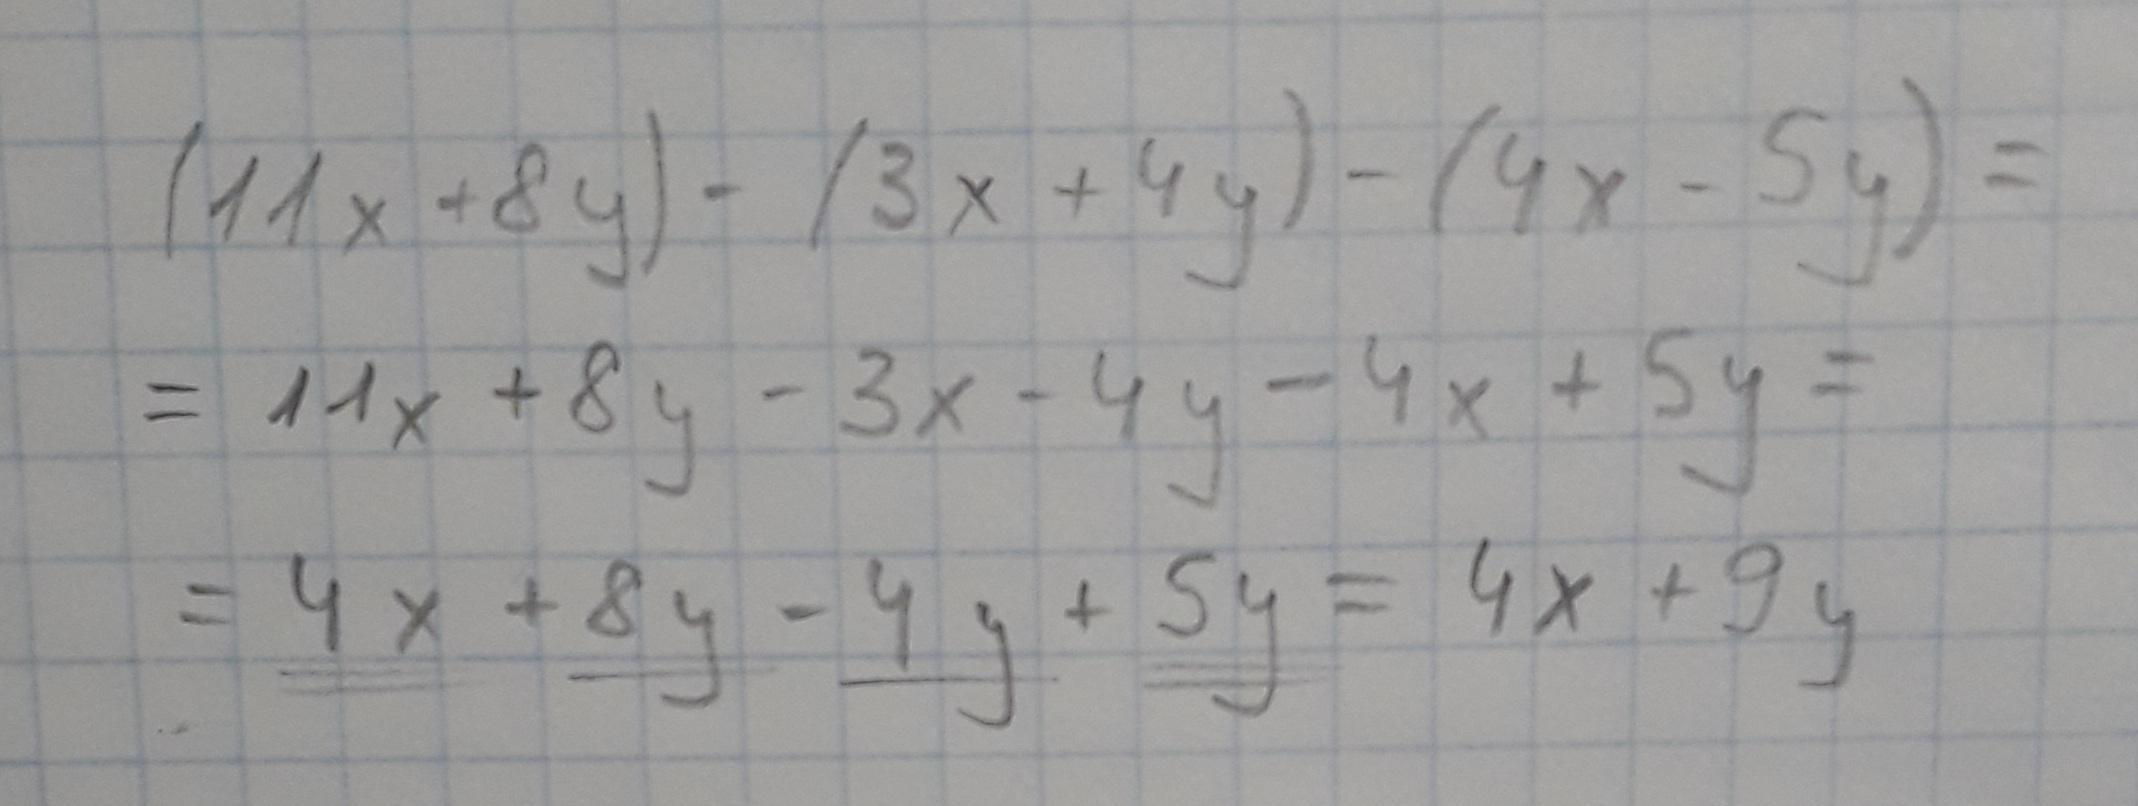 (11x + 8y) - (3x + 4y) - (4x - 5y) =
= 11x + 8y - 3x - 4y - 4x + 5y =
= 4x + 8y - 4y + 5y = 4x + 9y